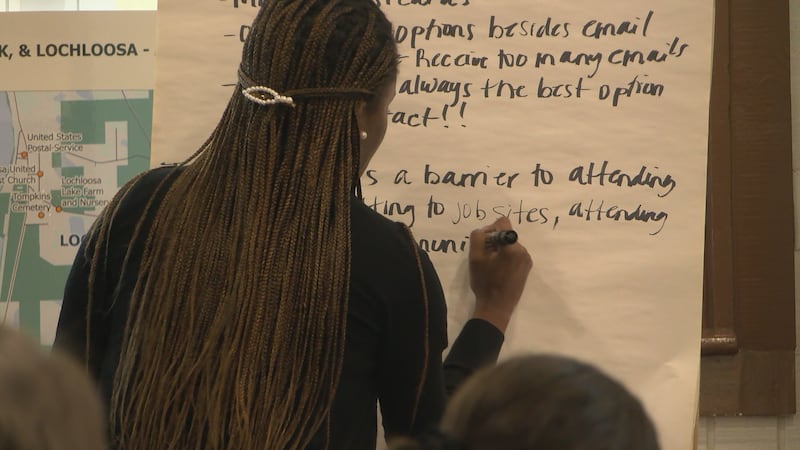 K, & LOCHLOOSA -
United States
Postal Service
United
Church
Tompkins
Cemetery
Lochloosa
Lake Farm
and Nursery
LOC
options besides email
- Receive too many emails
always the best option
act!!
s a barrier to attending
ting to job sites, attending
muni